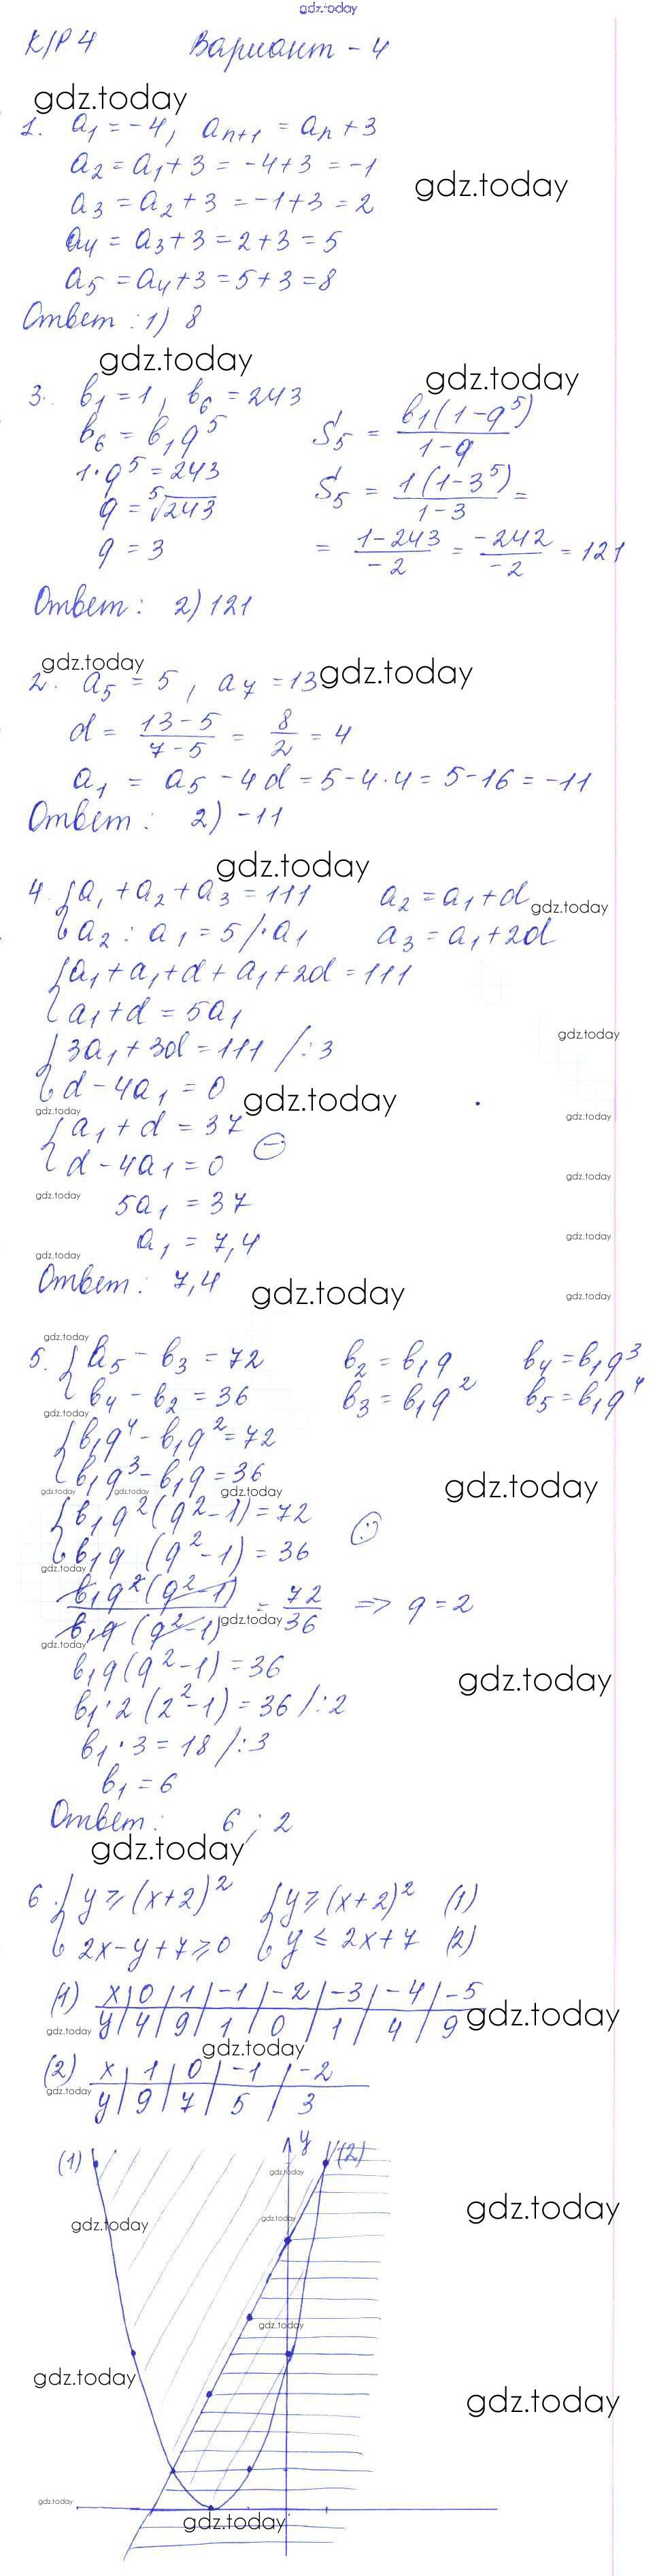 gdz.today
К/Р 4 Вариант - 4
gdz.today
1. a₁ = -4, aₙ₊₁ = aₙ + 3
a₂ = a₁ + 3 = -4+3 = -1
gdz.today
a₃ = a₂ + 3 = -1+3 = 2
a₄ = a₃+3 = 2+3 = 5
a₅ = a₄+3 = 5+3 = 8
Ответ: 1) 8
gdz.today gdz.today
3. b₁ = 1, b₆ = 243
b₆ = b₁q⁵ S₅ = b₁(1-q⁵)/(1-q)
1·q⁵ = 243 S₅ = 1(1-3⁵)/(1-3) =
q = ⁵√243
q = 3 = (1-243)/(-2) = (-242)/(-2) = 121
Ответ: 2) 121
gdz.today gdz.today
2. a₅ = 5, a₇ = 13
d = (13-5)/(7-5) = 8/2 = 4
a₁ = a₅ - 4d = 5-4·4 = 5-16 = -11
Ответ: 2) -11
gdz.today
4. { a₁ + a₂ + a₃ = 111 a₂ = a₁+d gdz.today
a₂ : a₁ = 5 /·a₁ a₃ = a₁+2d
{ a₁+a₁+d+a₁+2d = 111
a₁+d = 5a₁
gdz.today
{ 3a₁+3d = 111 /:3
d-4a₁ = 0 gdz.today
gdz.today gdz.today
{ a₁+d = 37 (-)
d-4a₁ = 0
gdz.today gdz.today
5a₁ = 37
a₁ = 7,4 gdz.today
gdz.today
Ответ: 7,4 gdz.today gdz.today
gdz.today
5. { b₅ - b₃ = 72 b₂ = b₁q b₄ = b₁q³
b₄ - b₂ = 36 b₃ = b₁q² b₅ = b₁q⁴
gdz.today
{ b₁q⁴ - b₁q² = 72
b₁q³ - b₁q = 36
gdz.today gdz.today gdz.today gdz.today
{ b₁q²(q²-1) = 72 (:)
b₁q (q²-1) = 36
gdz.today
b₁q²(q²-1)/(b₁q(q²-1)) = 72/36 => q = 2
gdz.today
gdz.today
b₁q(q²-1) = 36
gdz.today
b₁·2(2²-1) = 36 /:2
b₁·3 = 18 /:3
b₁ = 6
Ответ: 6; 2
gdz.today
6. { y ≥ (x+2)² { y ≥ (x+2)² (1)
2x-y+7 ≥ 0 y ≤ 2x+7 (2)
(1) x | 0 | 1 | -1 | -2 | -3 | -4 | -5
y | 4 | 9 | 1 | 0 | 1 | 4 | 9 gdz.today
gdz.today
gdz.today
(2) x | 1 | 0 | -1 | -2
gdz.today
y | 9 | 7 | 5 | 3
(1) y (2)
gdz.today
gdz.today
gdz.today
gdz.today
gdz.today
gdz.today
gdz.today
gdz.today
gdz.today